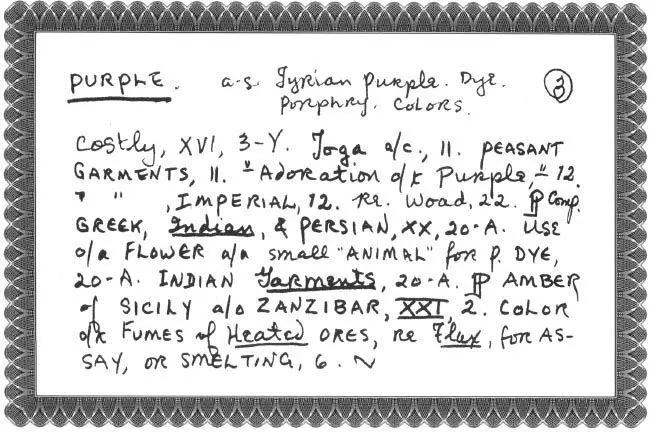 PURPLE. a.s. Tyrian Purple. Dye. ③
Porphry. Colors.
Costly, XVI, 3-Y. Toga a/c., 11. PEASANT
GARMENTS, 11. "Adoration o/x Purple," 12.
" " , IMPERIAL, 12. Re. Woad, 22. P Comp.
GREEK, Indian, & PERSIAN, XX, 20-A. USE
o/a FLOWER a/a small "ANIMAL" for P. DYE,
20-A. INDIAN Garments, 20-A. P AMBER
of SICILY a/o ZANZIBAR, XXI, 2. COLOR
o/x FUMES of Heated ORES, re Flux, for AS-
SAY, OR SMELTING, 6. N